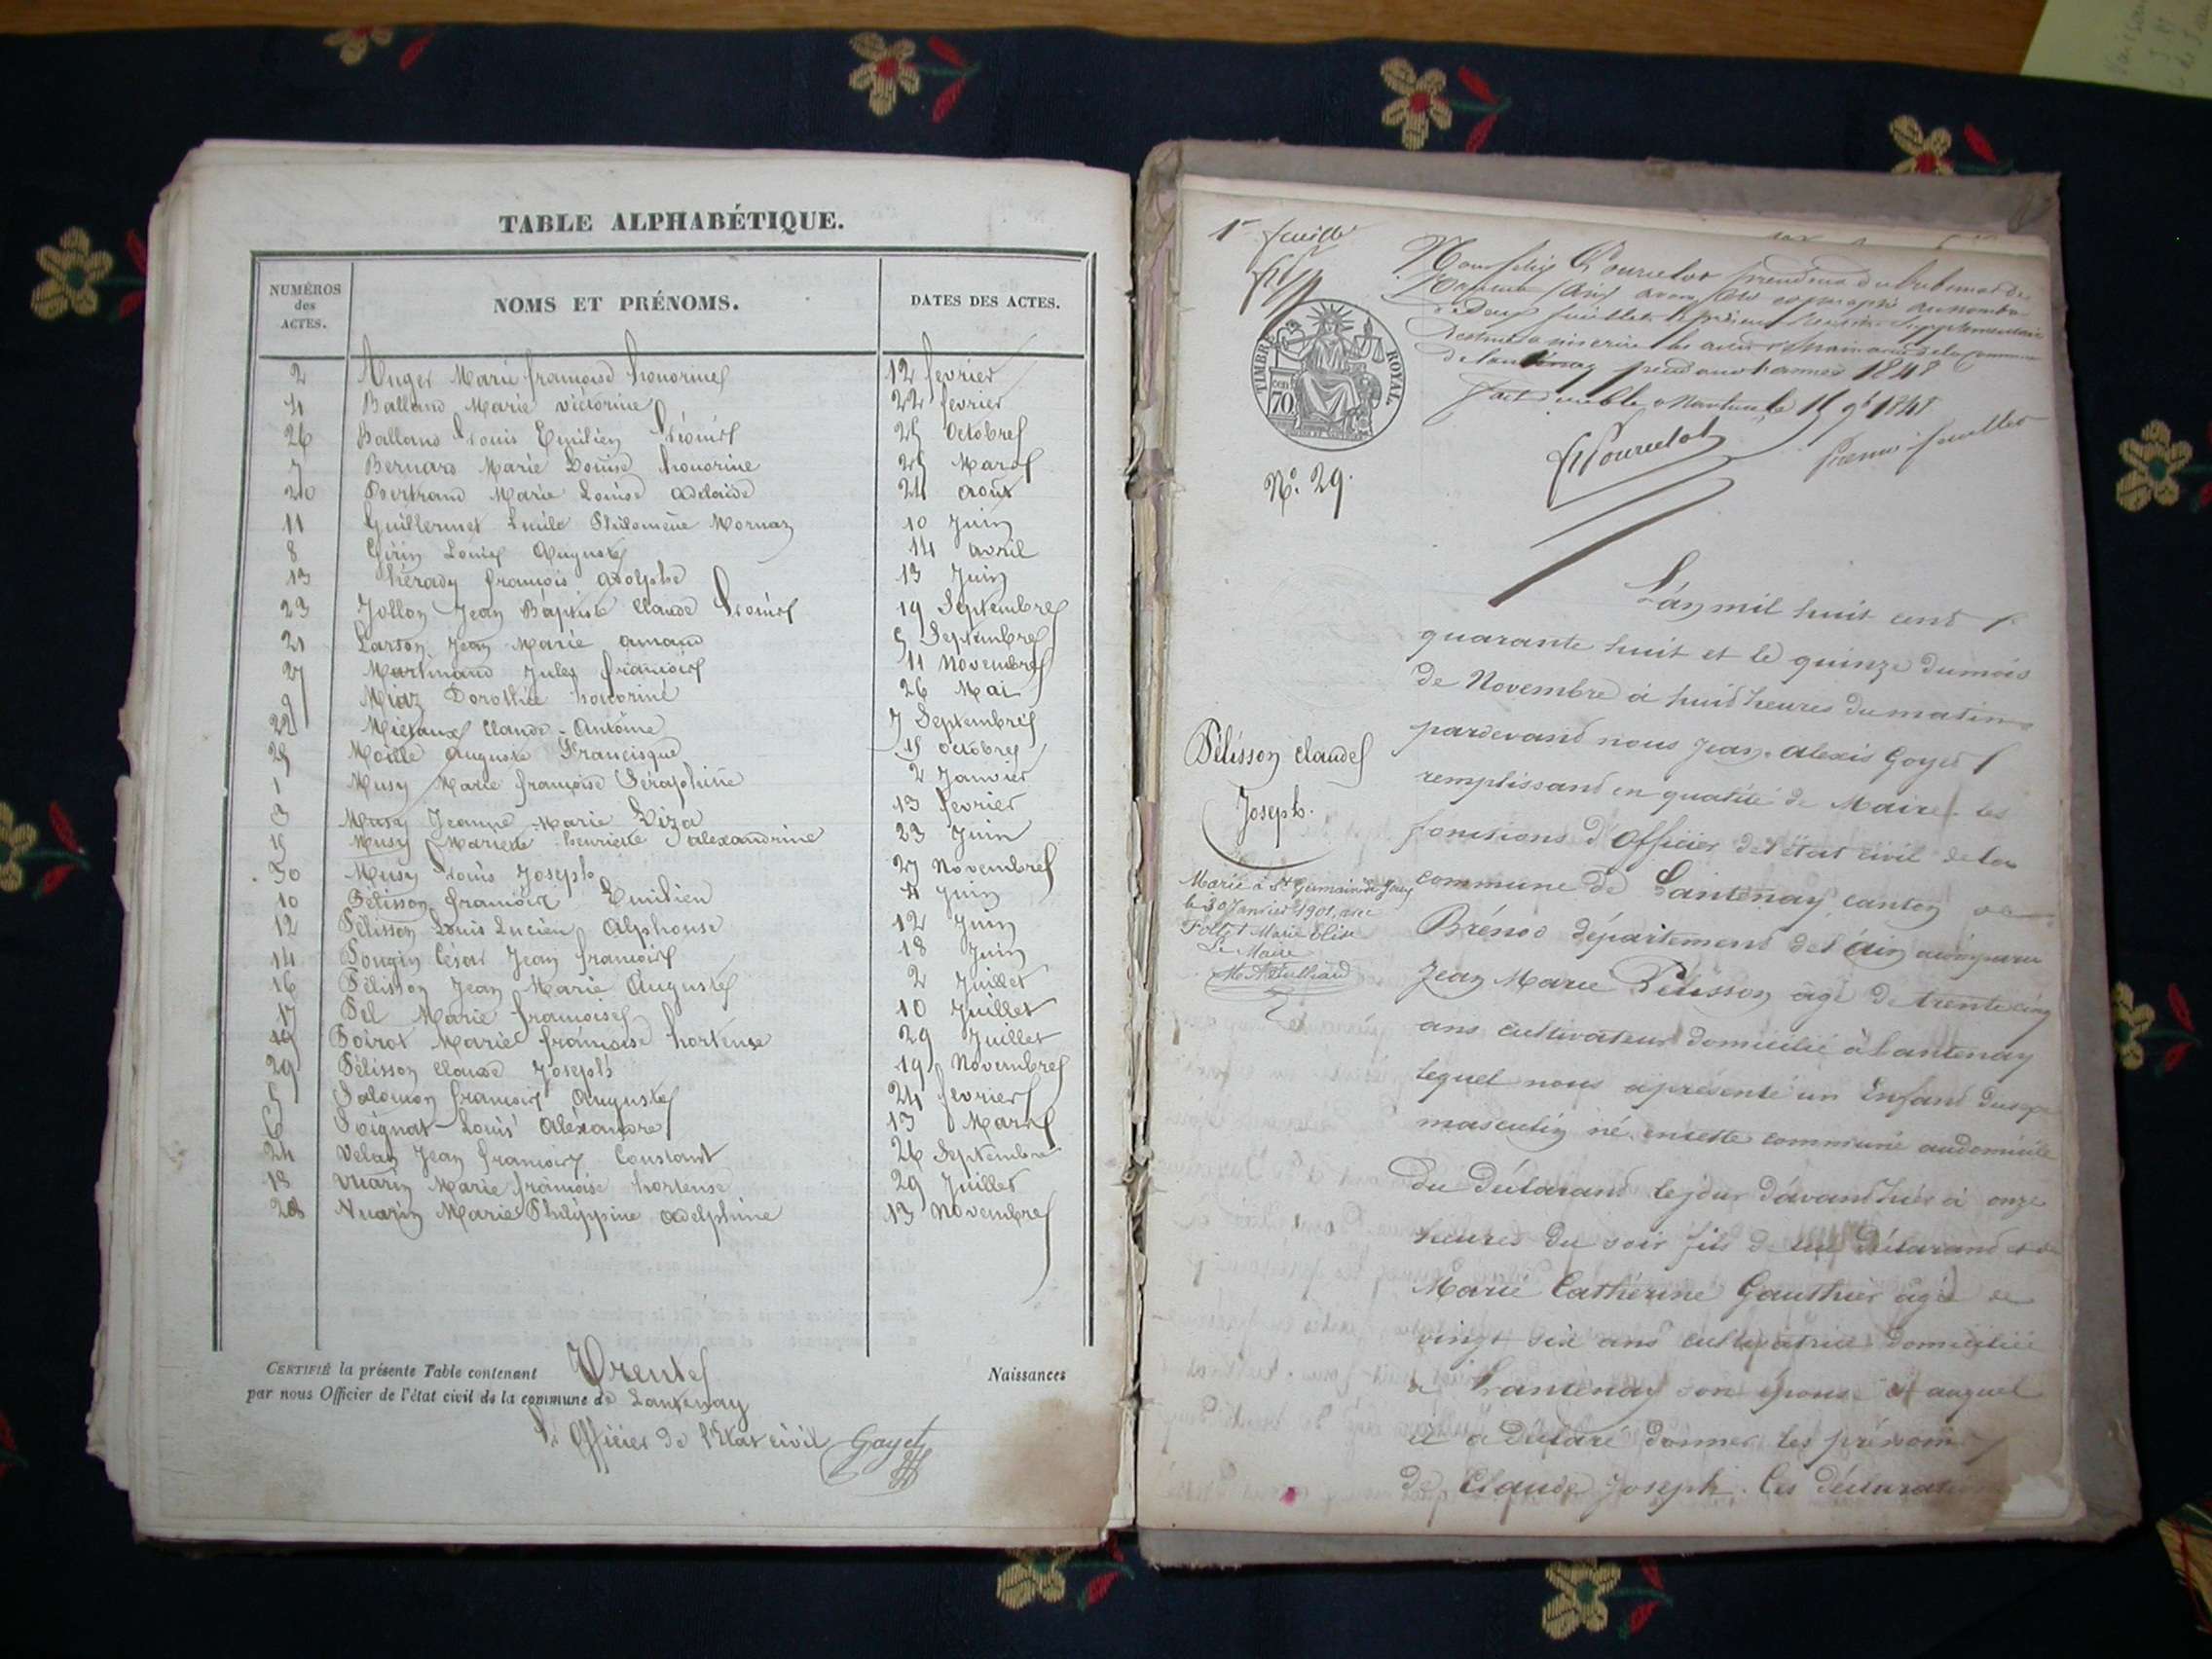 TABLE ALPHABÉTIQUE.
NUMÉROS des ACTES.
NOMS ET PRÉNOMS.
DATES DES ACTES.
2 Auger Marie françoise honorine 12 fevrier
4 Balland Marie victorine 22 fevrier
26 Balland Louis Emilien 25 Octobre
7 Bernard Marie Louise honorine 25 Mars
20 Bertrand Marie Louise adelaïde 24 aout
11 Guillermet Philomène Mornay 10 Juin
8 Girin Louis Auguste 14 avril
13 françois adolphe 13 Juin
23 Jollon Jean Baptiste Claude 19 Septembre
21 Larson Jean Marie amand 5 Septembre
27 Martinand Jules françois 11 Novembre
9 Miaz Dorothée honorine 26 Mai
22 Claude Antoine 7 Septembre
25 Moille Auguste Francisque 15 octobre
1 Musy Marie françoise Séraphine 2 Janvier
3 Musy Jeanne Marie Liza 13 fevrier
15 Musy Mariette henriette alexandrine 23 Juin
30 Musy Louis Joseph 27 Novembre
10 Pélisson françois Emilien 4 Juin
12 Pélisson Louis Lucien Alphonse 12 Juin
14 Pougin César Jean françois 18 Juin
16 Pélisson Jean Marie Auguste 2 Juillet
17 Pel Marie françoise 10 Juillet
19 Poirot Marie françoise hortense 29 Juillet
29 Pélisson Claude Joseph 15 Novembre
5 Salomon françois Auguste 24 fevrier
6 Soignat Louis Aléxandre 13 Mars
24 Jean françois Constant 26 Septembre
18 Vuarin Marie françoise hortense 29 Juillet
28 Vuarin Marie Philippine adelphine 13 Novembre
CERTIFIÉ la présente Table contenant Trente Naissances
par nous Officier de l'état civil de la commune de Lantenay
L'Officier de l'Etat civil Goyet
1re feuille
TIMBRE ROYAL
70
Nous félix Pourcelot président du tribunal de
avons coté et paraphé au nombre
de Deux feuillets le présent supplémentaire
Destiné a inscrire les actes de naissances de la Commune
de Lantenay pendant l'année 1848
fait double a Nantua le 15 9bre 1848
Premier feuillet
Pourcelot
N°. 29.
L'an mil huit cent
quarante huit et le quinze du mois
de Novembre à huit heures du matin
pardevant nous Jean-Alexis Goyet
remplissant en qualité de Maire les
fonctions d'Officier de l'état civil de la
commune de Lantenay, canton de
Brénod département de l'Ain a comparu
Jean Marie Pélisson âgé de trente cinq
ans cultivateur domicilié à Lantenay
lequel nous a présenté un Enfant du sexe
masculin né en cette commune au domicile
du déclarant le jour d'avant hier à onze
heures du soir fils de lui déclarant et de
Marie Cathérine Gauthier âgée de
vingt six ans cultivatrice domiciliée
à Lantenay son épouse et auquel
il a déclaré donner les prénoms
de Claude Joseph. Les déclaration
Pélisson Claude
Joseph.
Marié à St Germain de Joux
le 30 Janvier 1901, avec
Marie Elise
Le Maire